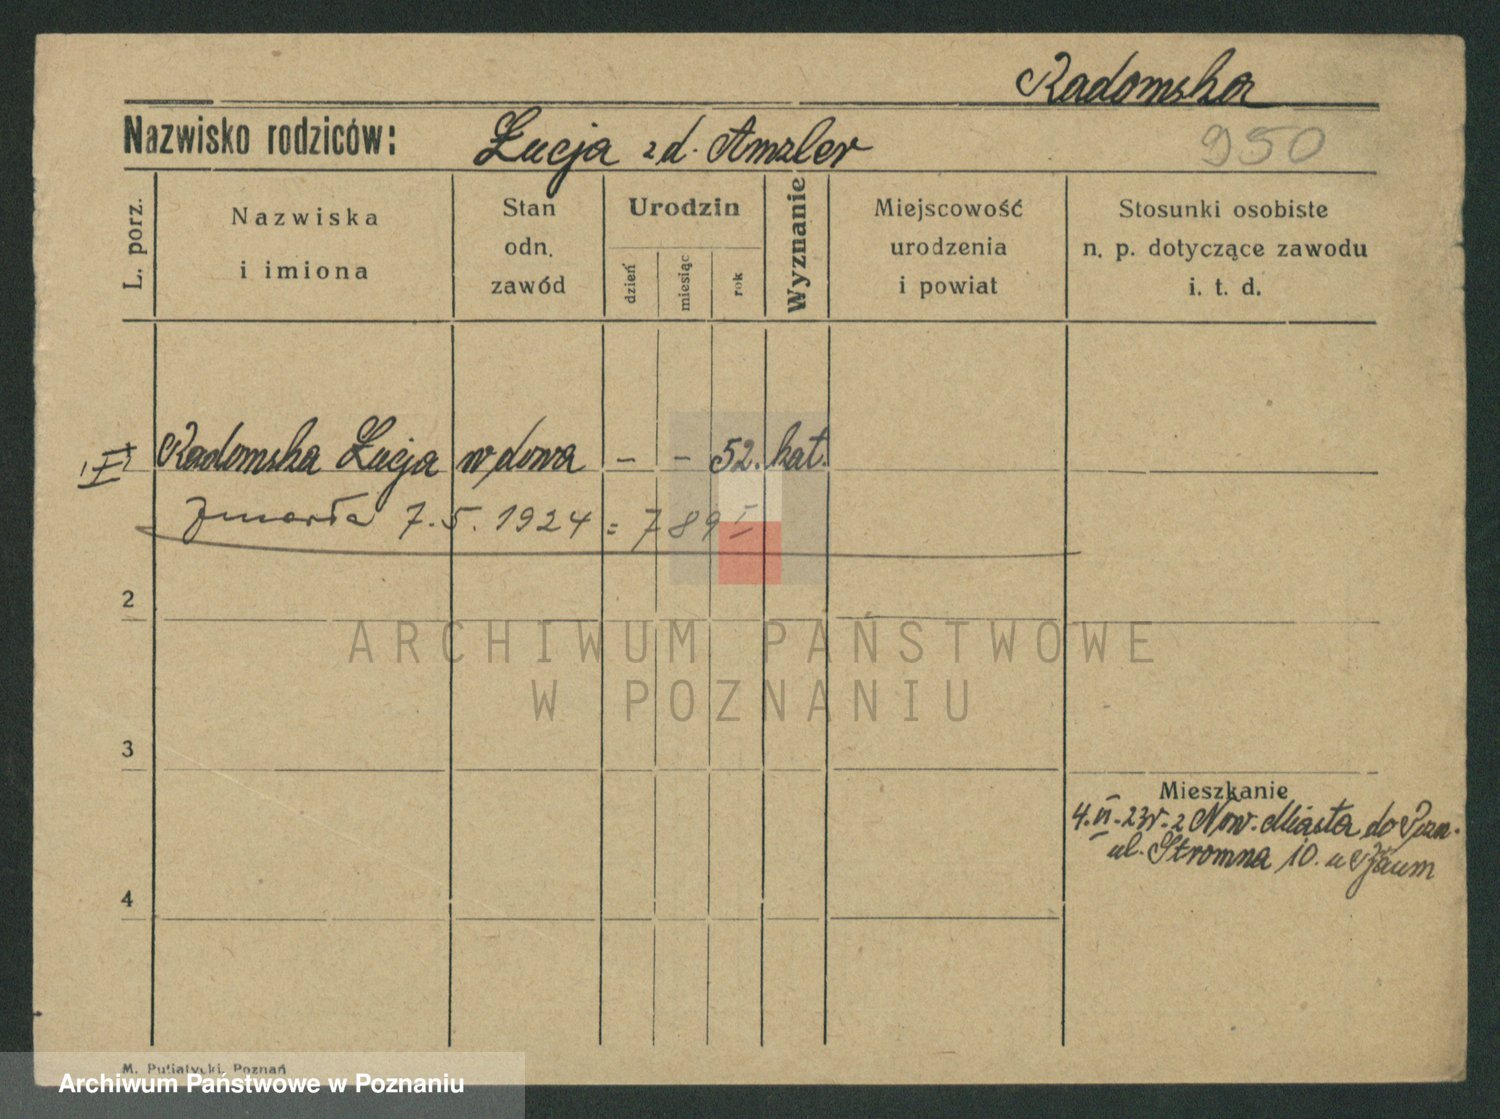 Radomska
Nazwisko rodziców: Łucja z d. Amzler 950
L. porz.
Nazwiska
i imiona
Stan
odn.
zawód
Urodzin
dzień
miesiąc
rok
Wyznanie
Miejscowość
urodzenia
i powiat
Stosunki osobiste
n. p. dotyczące zawodu
i. t. d.
Radomska Łucja wdowa - - 52. kat.
Zmarła 7.5.1924 = 789 I
2
ARCHIWUM PAŃSTWOWE
W POZNANIU
3
Mieszkanie
4.VI.23r. z Now. Miasta do Pozn.
ul. Stromna 10. u
4
M. Putiatycki, Poznań
Archiwum Państwowe w Poznaniu